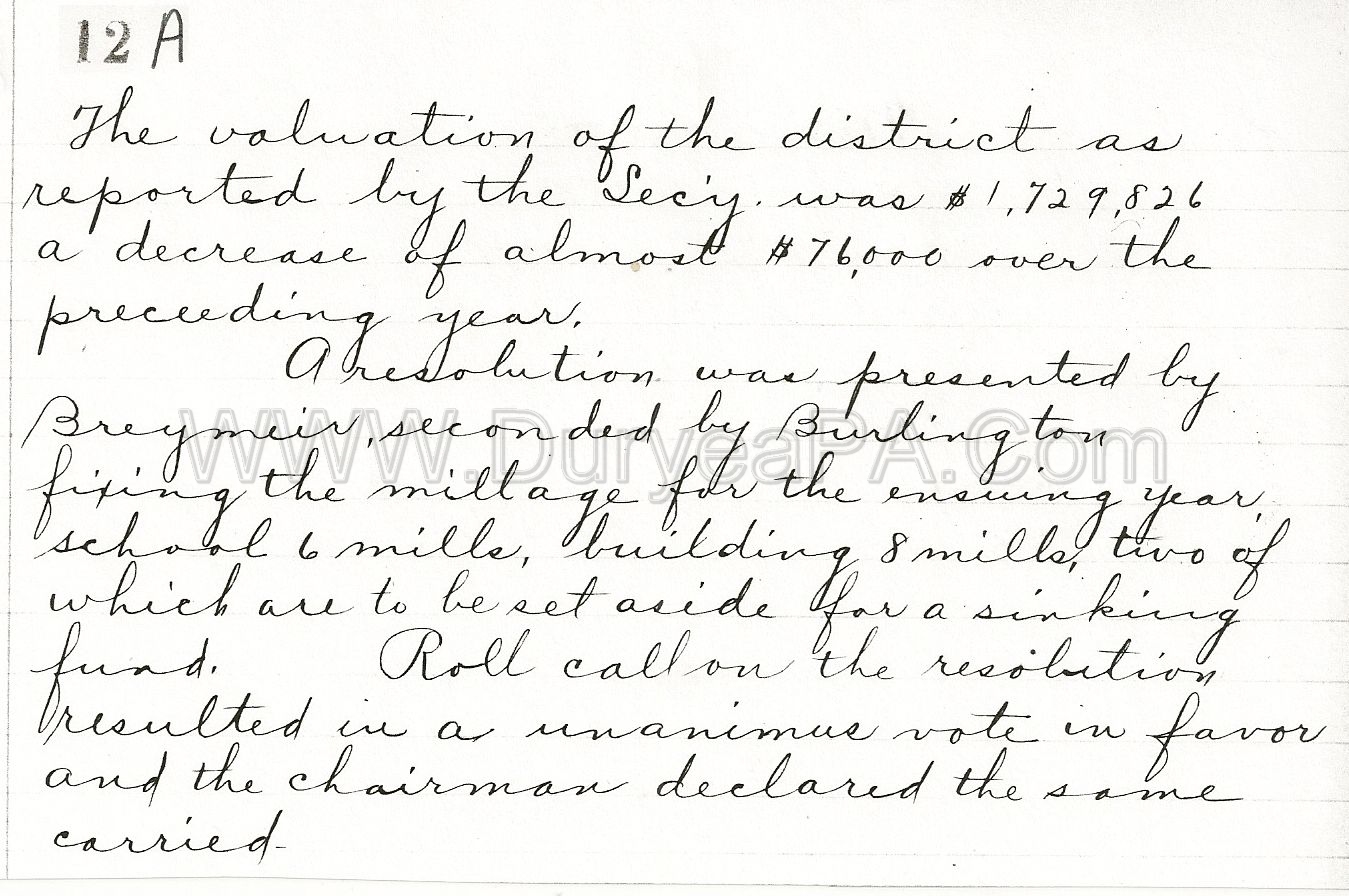 12 A
The valuation of the district as
reported by the Sec'y. was $1,729,826
a decrease of almost $76,000 over the
preceeding year.
A resolution was presented by
Breymeir, seconded by Burlington
WWW.DuryeaPA.Com
fixing the millage for the ensuing year,
school 6 mills, building 8 mills, two of
which are to be set aside for a sinking
fund. Roll call on the resolution
resulted in a unanimus vote in favor
and the chairman declared the same
carried-